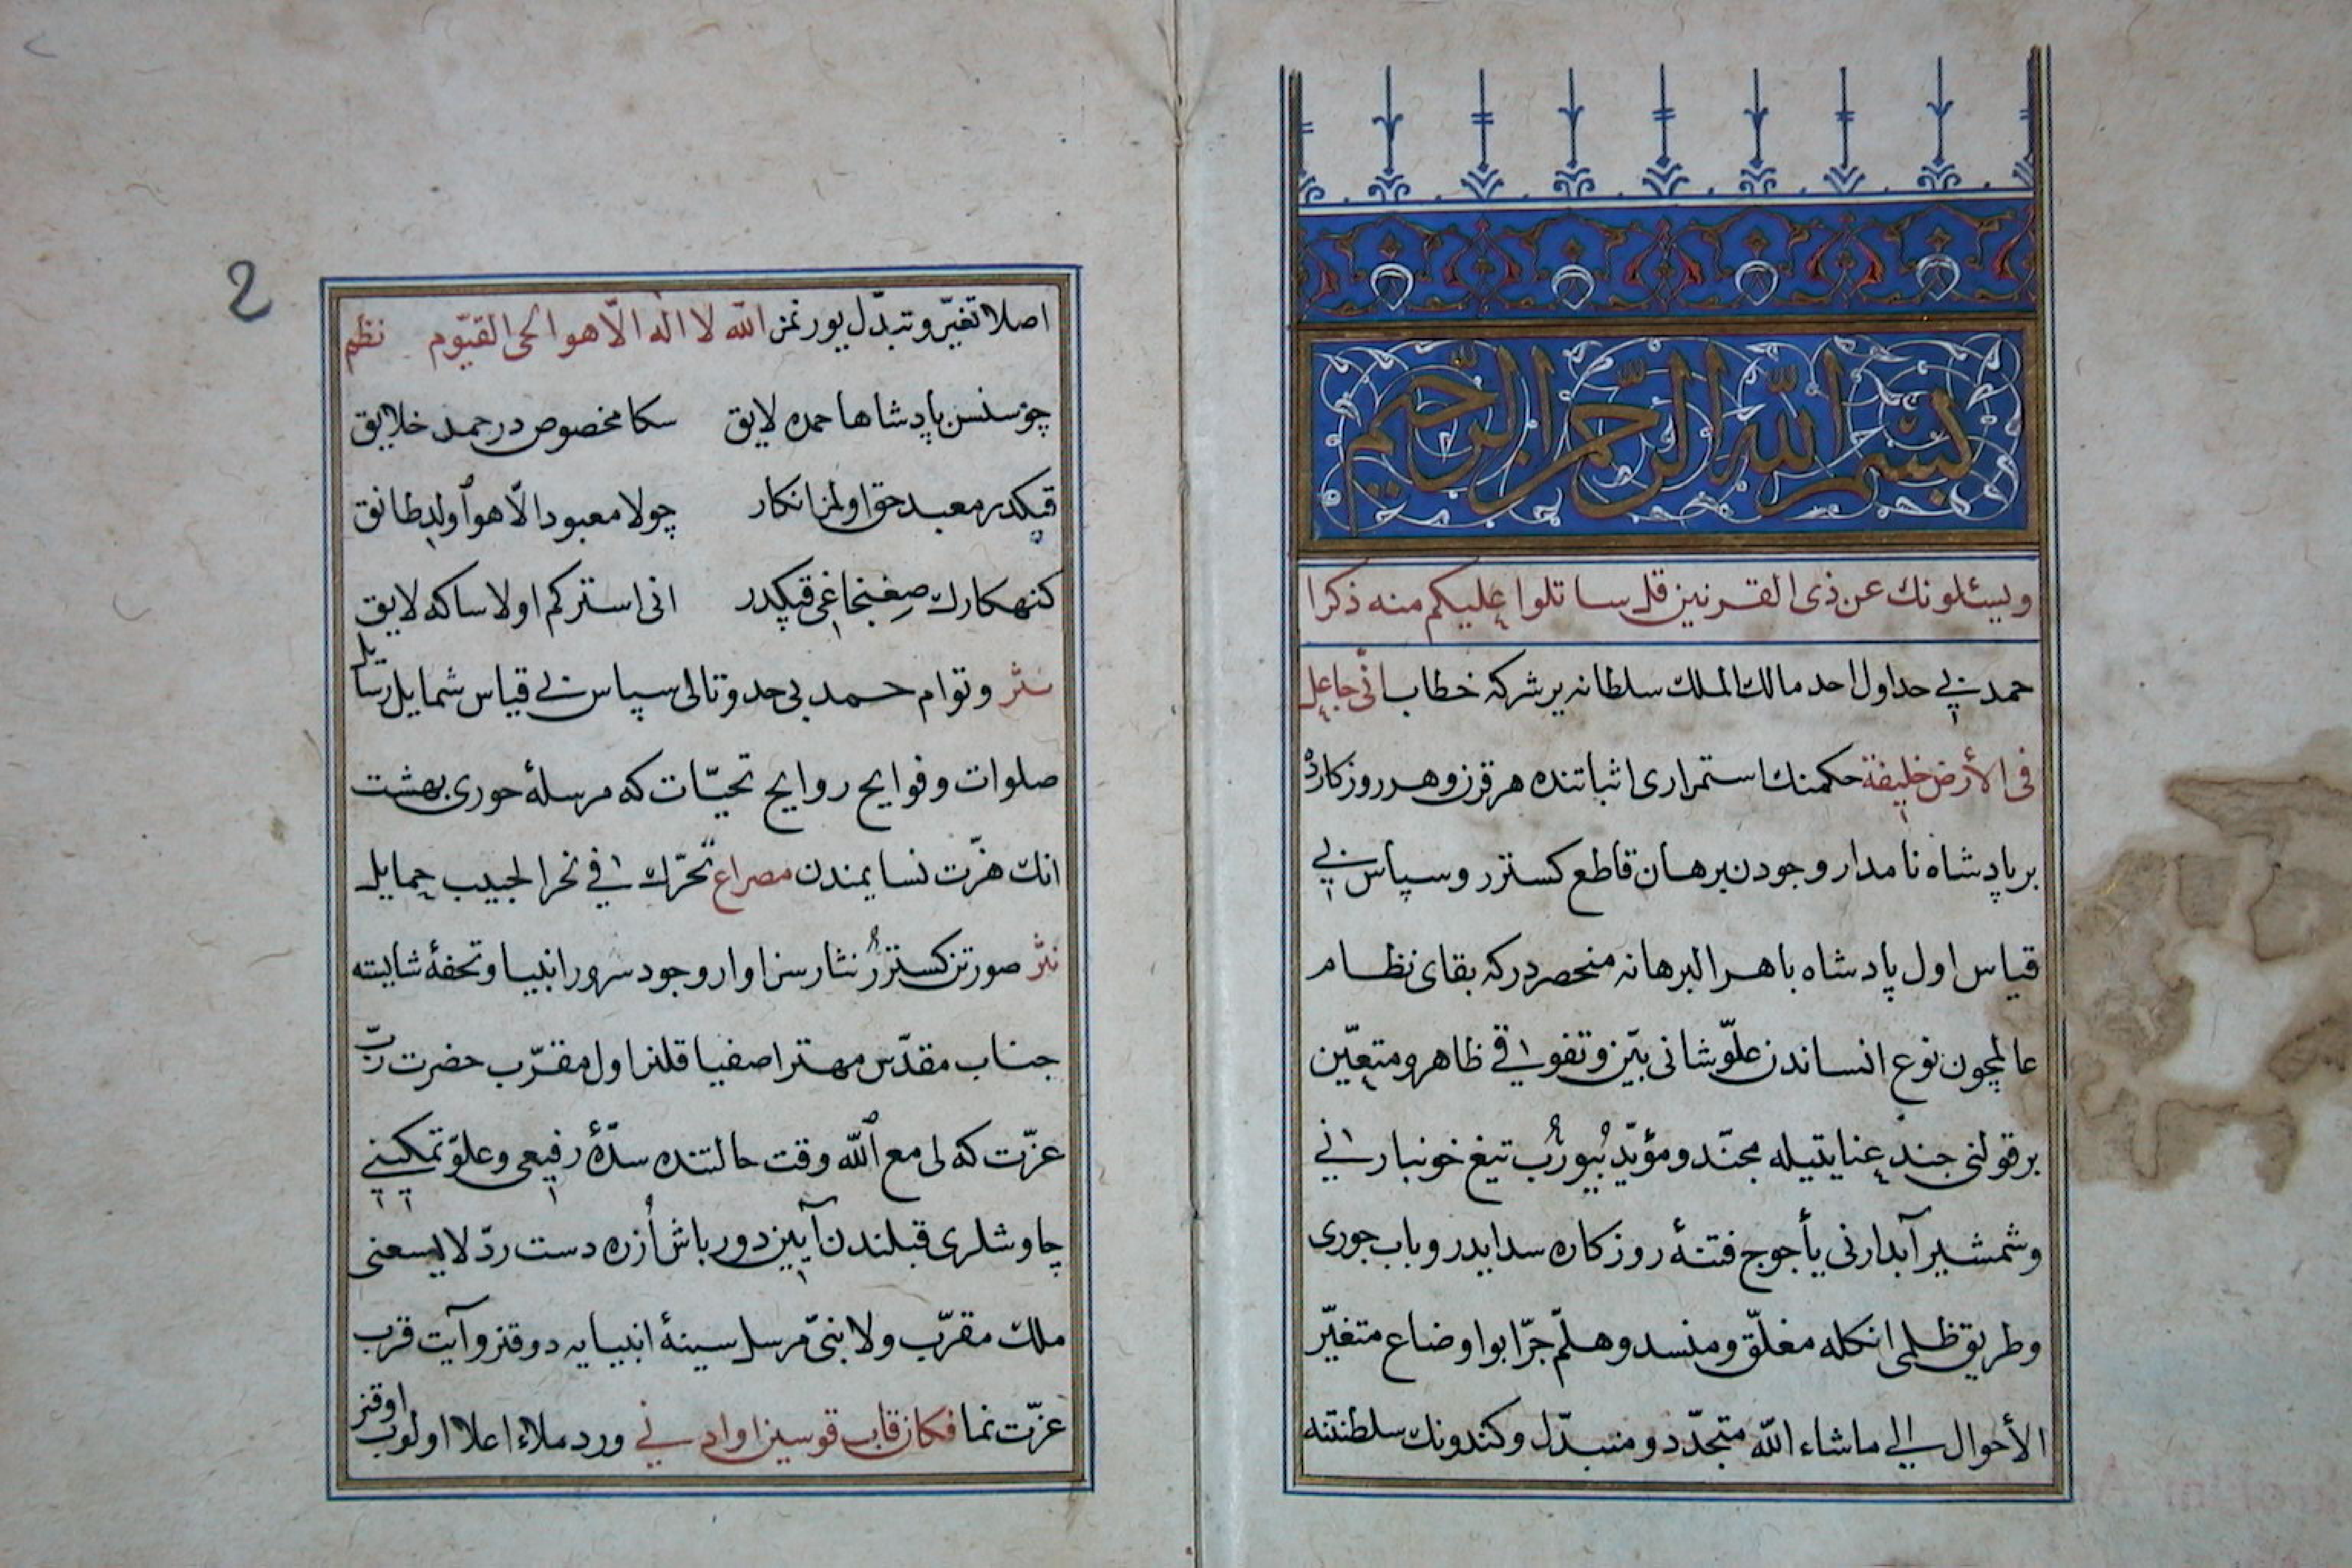 بسم الله الرحمن الرحيم
ويسئلونك عن ذى القرنين قل ساتلوا عليكم منه ذكرا
حمد بى حد اول احد مالك الملك سلطانه يرشركه خطاب انّى جاعل
فى الأرض خليفة حكمنك استمرارى اثباتنده هر قرن وهر روزكارده
بر پادشاه نامدار وجودن برهان قاطع كستررو سپاس بى
قياس اول پادشاه باهر البرهانه منحصردركه بقاى نظام
عالمچون نوع انساندن علوّ شانى بيّن وتفوقى ظاهر ومتعيّن
بر قولنى جند عنايتيله مجنّد ومؤيّد بيورُب تيغ خونبارانى
وشمشير آبدارنى يأجوج فتنۀ روزكاره سد ايدر وباب جورى
وطريق ظلمى انكله مغلّق ومنسد وهلمّ جرّا بو اوضاع متغيّر
الأحوال الى ماشاء الله متجدّد ومتبدّل وكندونك سلطنتنه
2
اصلا تغيّر وتبدّل يورنمز الله لا اله الّا هو الحى القيّوم نظم
چو سنسن پادشاها حمده لايق سكا مخصوص در حمد خلايق
قپكدر معبد حق اولمز انكار چو لا معبود الّا هو اولدطانق
كنهكارك صغنجاغى قپكدر انى استركم اولا ساكه لايق
نثر وتوام حمد بى حد وتالى سپاس بى قياس شمايل رسايل
صلوات وفوايح روايح تحيّات كه مرسلۀ حورى بهشت
انك هزّت نسايمندن مصراع تحرّك فى نحر الحبيب حمايل
نثر صورتن كسترر نثار سزاوار وجود سرور انبيا وتحفۀ شايسته
جناب مقدّس مهتر اصفيا قلنر اول مقرّب حضرت ربّ
عزّت كه لى مع الله وقت حالتنده سدّۀ رفيعى وعلوّ تمكينى
چاوشلرى قبلندن آيين دورباش اُزره دست ردّ لا يسعنى
ملك مقرّب ولا نبىّ مرسل سينۀ انبيايه دوقنر وآيت قرب
عزّت نما فكان قاب قوسين او ادنى ورد ملاء اعلا اولوب اوقنر